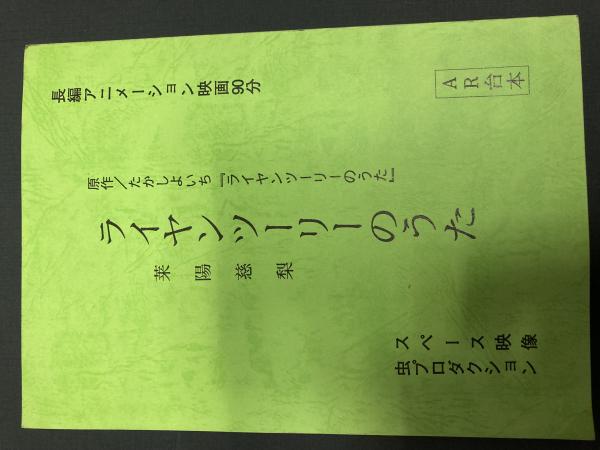 長編アニメーション映画90分
AR台本
原作／たかしよいち『ライヤンツーリーのうた』
ライヤンツーリーのうた
莱陽慈梨
スペース映像
虫プロダクション